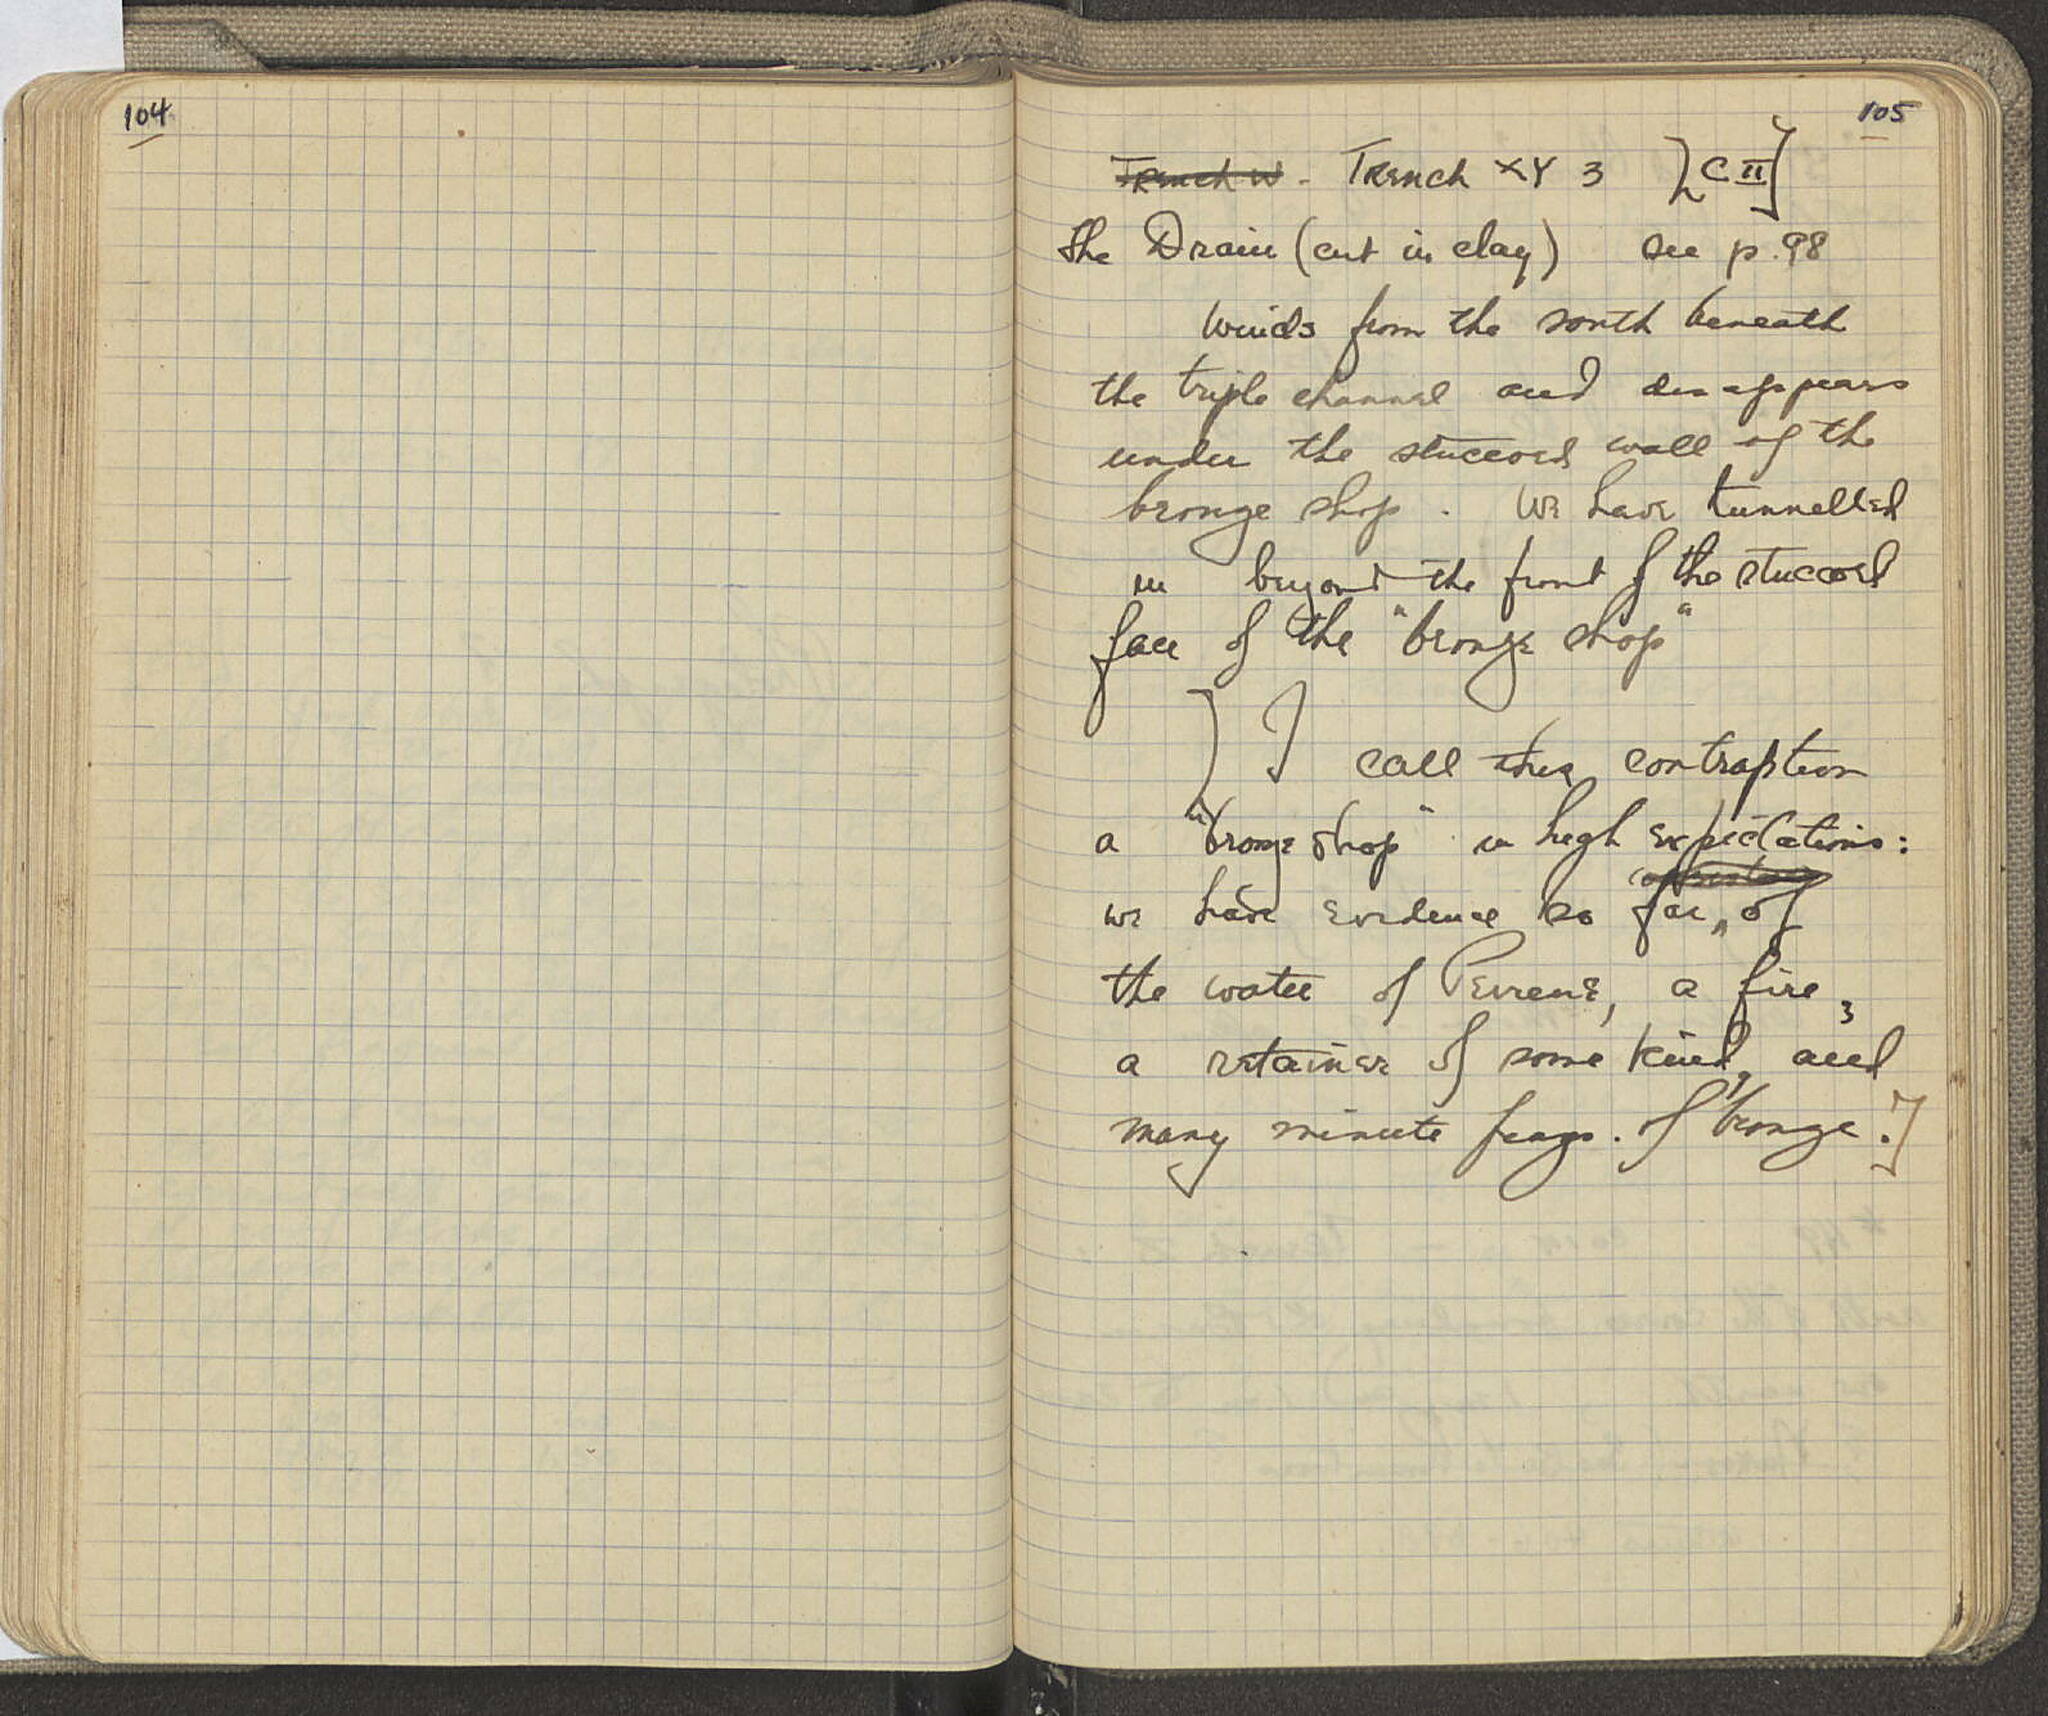 104
105
Trench W - Trench XY 3 [C II]
the Drain (cut in clay) see p. 98
winds from the south beneath
the triple channel and disappears
under the stuccoed wall of the
bronze shop. We have tunnelled
in beyond the front of the stuccoed
face of the "bronze shop"
[I call this contraption
a "bronze shop" in high expectations:
we have evidence so far, of
the water of Peirene, a fire,
a retainer of some kind, and
many minute frags. of bronze.]